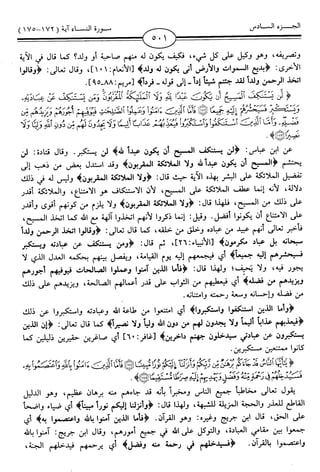 الجزء السادس
٥٠١
سورة النساء آية (١٧٢-١٧٥)
وتصريفه، وهو وكيل على كل شيء، فكيف يكون له منهم صاحبة أو ولد؟ كما قال في الآية
الأخرى: ﴿بديع السموات والأرض أنى يكون له ولد﴾ [الأنعام: ١٠١]، وقال تعالى: ﴿وقالوا
اتخذ الرحمن ولداً لقد جئتم شيئاً إداً - إلى قوله - فرداً﴾ [مريم: ٨٨-٩٥].
لَّن يَسْتَنكِفَ الْمَسِيحُ أَن يَكُونَ عَبْدًا لِّلَّهِ وَلَا الْمَلَٰٓئِكَةُ الْمُقَرَّبُونَ وَمَن يَسْتَنكِفْ عَنْ عِبَادَتِهِ
وَيَسْتَكْبِرْ فَسَيَحْشُرُهُمْ إِلَيْهِ جَمِيعًا فَأَمَّا الَّذِينَ ءَامَنُوا وَعَمِلُوا الصَّٰلِحَٰتِ فَيُوَفِّيهِمْ أُجُورَهُمْ وَيَزِيدُهُم مِّن
فَضْلِهِ وَأَمَّا الَّذِينَ اسْتَنكَفُوا وَاسْتَكْبَرُوا فَيُعَذِّبُهُمْ عَذَابًا أَلِيمًا وَلَا يَجِدُونَ لَهُم مِّن دُونِ اللَّهِ وَلِيًّا وَلَا
نَصِيرًا
عن ابن عباس: ﴿لن يستنكف المسيح أن يكون عبداً لله﴾ لن يستكبر. وقال قتادة: لن
يحتشم ﴿المسيح أن يكون عبداً لله ولا الملائكة المقربون﴾ وقد استدل بعض من ذهب إلى
تفضيل الملائكة على البشر بهذه الآية حيث قال: ﴿ولا الملائكة المقربون﴾ وليس له في ذلك
دلالة، لأنه إنما عطف الملائكة على المسيح، لأن الاستنكاف هو الامتناع، والملائكة أقدر
على ذلك من المسيح، فلهذا قال: ﴿ولا الملائكة المقربون﴾ ولا يلزم من كونهم أقوى وأقدر
على الامتناع أن يكونوا أفضل. وقيل: إنما ذكروا لأنهم اتخذوا آلهة مع الله كما اتخذ المسيح،
فأخبر تعالى أنهم عبيد من عباده وخلق من خلقه، كما قال تعالى: ﴿وقالوا اتخذ الرحمن ولداً
سبحانه بل عباد مكرمون﴾ [الأنبياء: ٢٦]، ثم قال: ﴿ومن يستنكف عن عبادته ويستكبر
فسيحشرهم إليه جميعاً﴾ أي فيجمعهم إليه يوم القيامة، ويفصل بينهم بحكمه العدل الذي لا
يجور فيه، ولا يحيف؛ ولهذا قال: ﴿فأما الذين آمنوا وعملوا الصالحات فيوفيهم أجورهم
ويزيدهم من فضله﴾ أي فيعطيهم من الثواب على قدر أعمالهم الصالحة، ويزيدهم على ذلك
من فضله وإحسانه وسعة رحمته وامتنانه.
﴿وأما الذين استنكفوا واستكبروا﴾ أي امتنعوا من طاعة الله وعبادته واستكبروا عن ذلك
﴿فيعذبهم عذاباً أليماً ولا يجدون لهم من دون الله ولياً ولا نصيراً﴾ كما قال تعالى: ﴿إن الذين
يستكبرون عن عبادتي سيدخلون جهنم داخرين﴾ [غافر: ٦٠] أي صاغرين حقيرين ذليلين كما
كانوا ممتنعين مستكبرين.
يَٰٓأَيُّهَا النَّاسُ قَدْ جَآءَكُم بُرْهَٰنٌ مِّن رَّبِّكُمْ وَأَنزَلْنَآ إِلَيْكُمْ نُورًا مُّبِينًا فَأَمَّا الَّذِينَ ءَامَنُوا بِاللَّهِ وَاعْتَصَمُوا بِهِ
فَسَيُدْخِلُهُمْ فِي رَحْمَةٍ مِّنْهُ وَفَضْلٍ وَيَهْدِيهِمْ إِلَيْهِ صِرَٰطًا مُّسْتَقِيمًا
يقول تعالى مخاطباً جميع الناس ومخبراً بأنه قد جاءهم منه برهان عظيم، وهو الدليل
القاطع للعذر والحجة المزيلة للشبهة، ولهذا قال: ﴿وأنزلنا إليكم نوراً مبيناً﴾ أي ضياء واضحاً
على الحق، قال ابن جريج وغيره: وهو القرآن. ﴿فأما الذين آمنوا بالله واعتصموا به﴾ أي
جمعوا بين مقامي العبادة، والتوكل على الله في جميع أمورهم، وقال ابن جريج: آمنوا بالله
واعتصموا بالقرآن. ﴿فسيدخلهم في رحمة منه وفضل﴾ أي يرحمهم فيدخلهم الجنة،